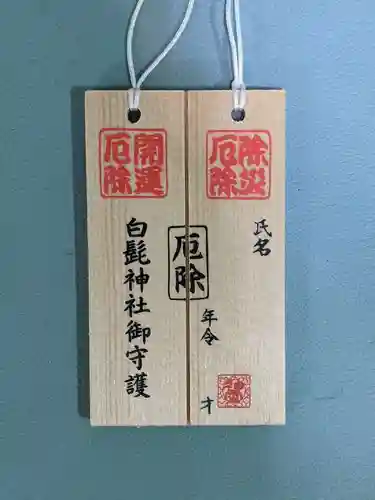 開運
厄除
除災
厄除
白髭神社御守護
厄除
氏名
年令
才